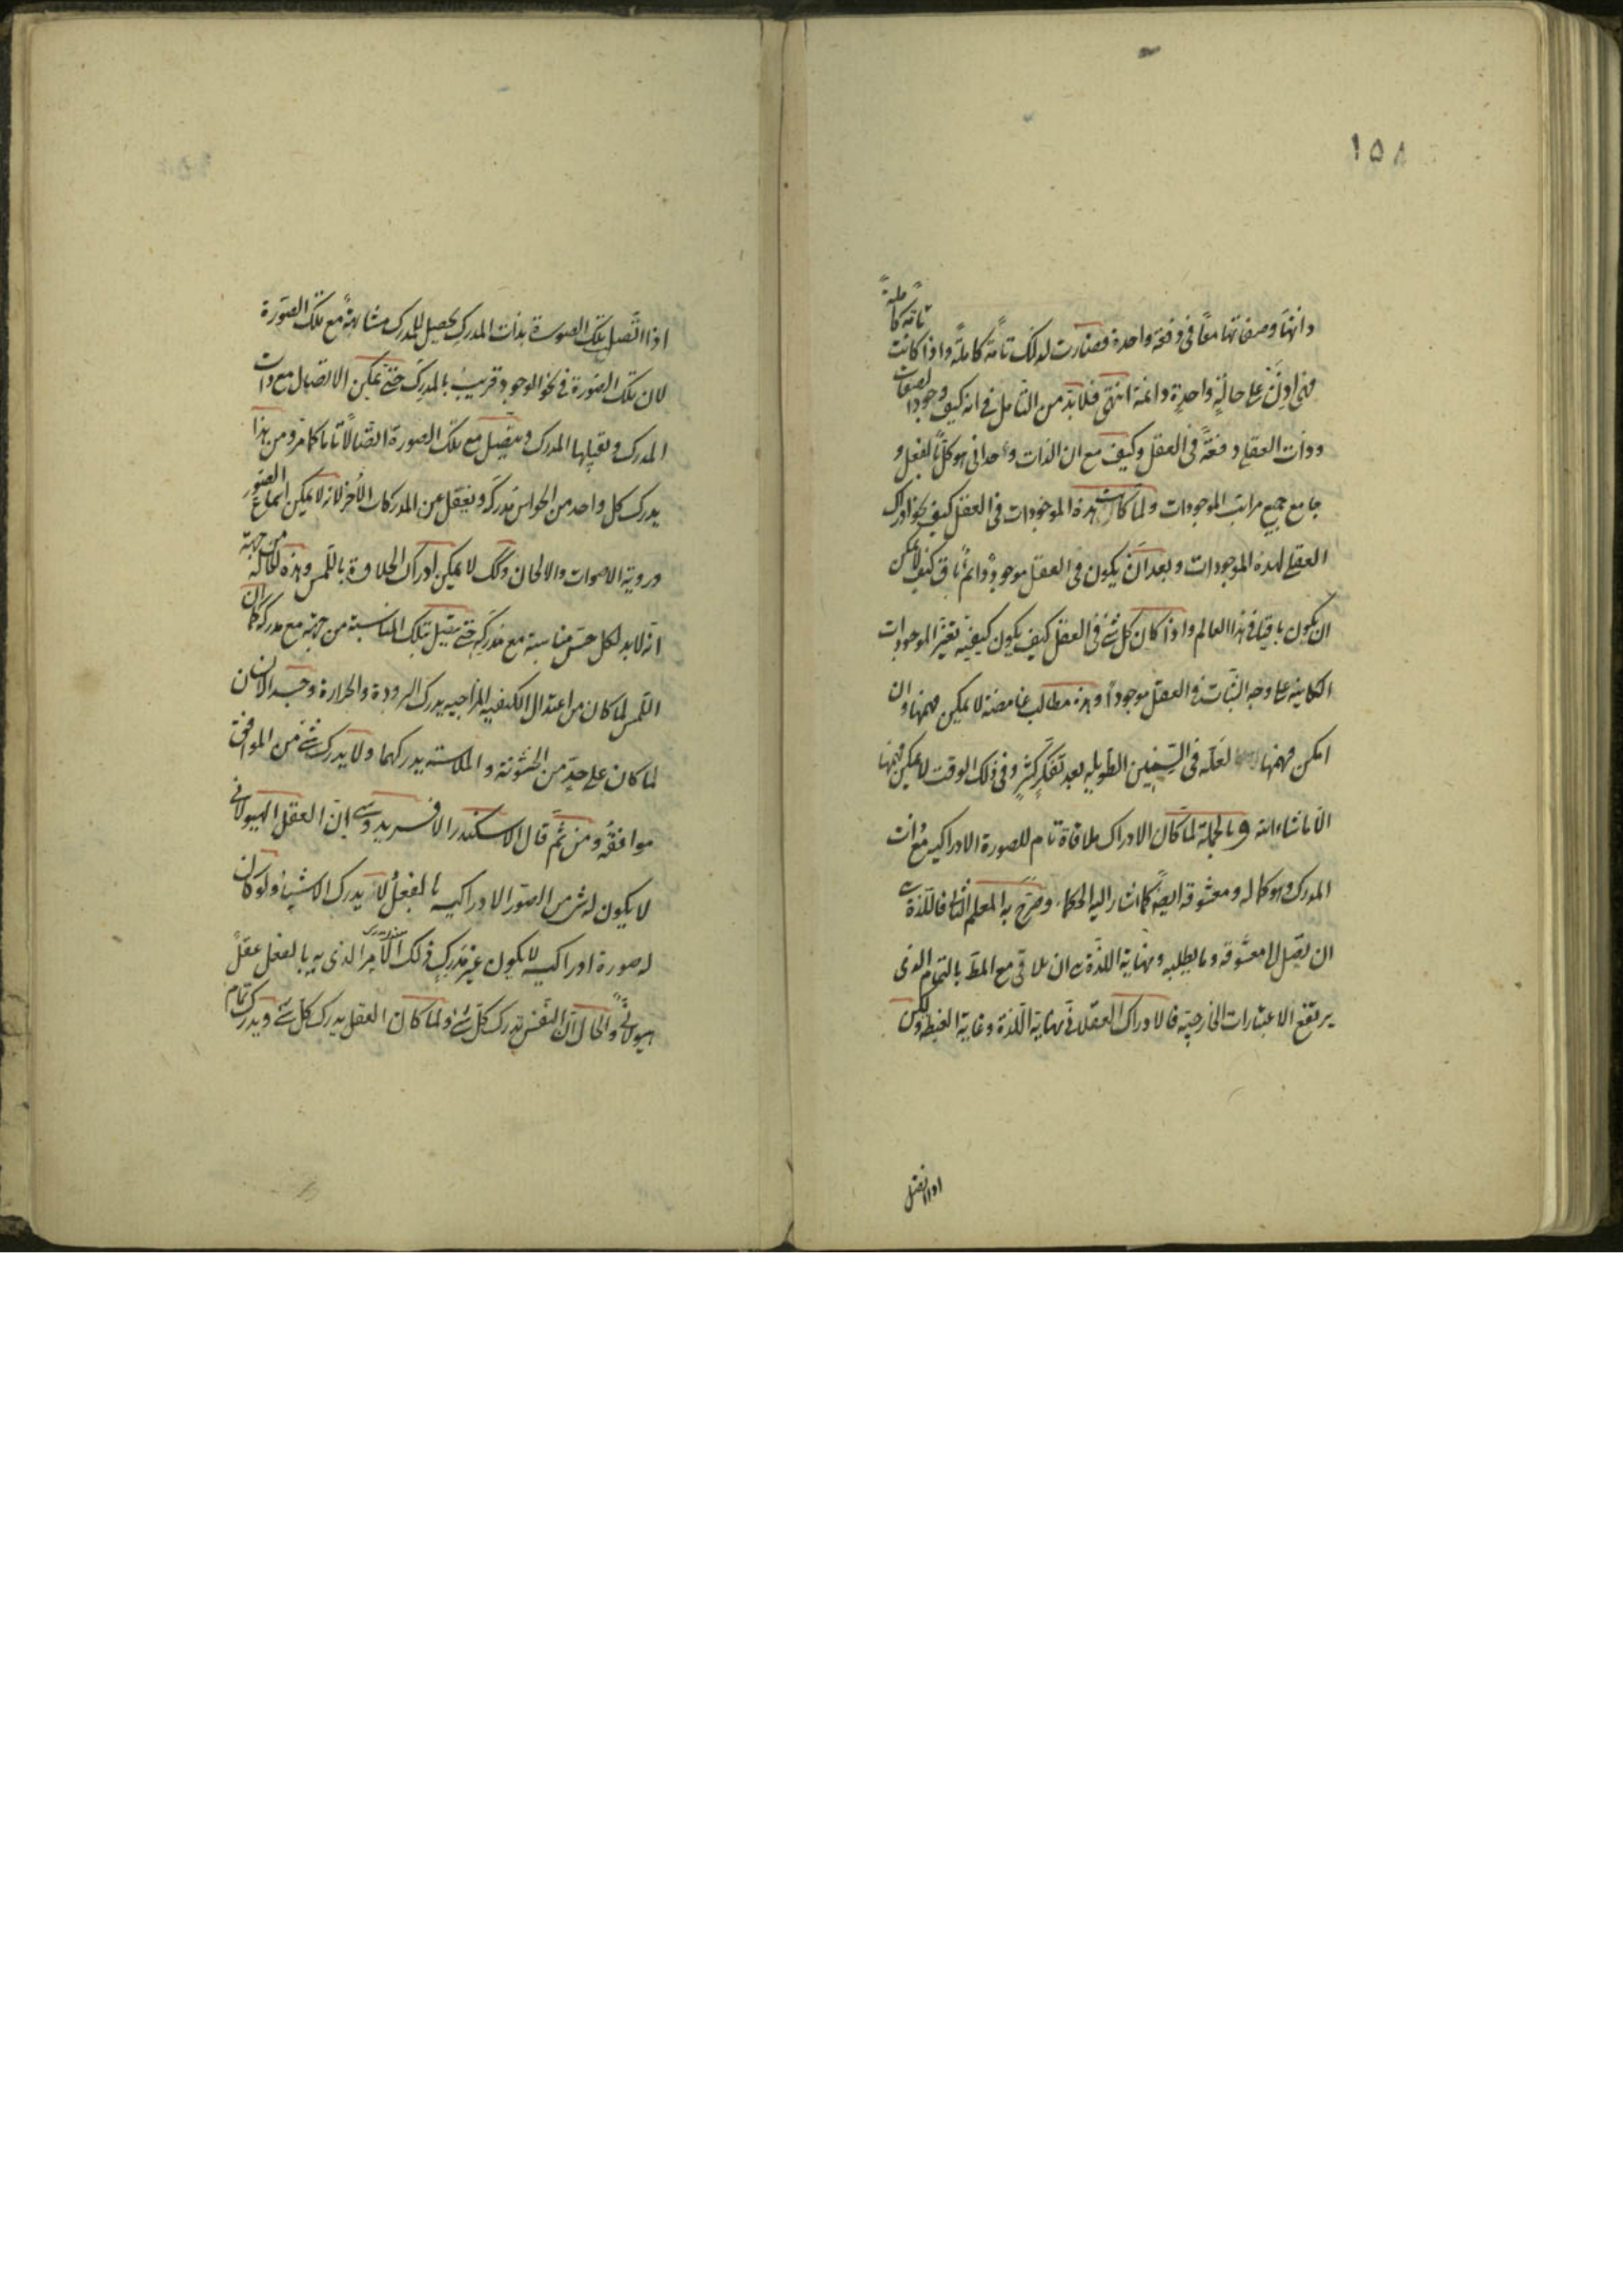 ١٥٨
تامة كاملةً
ذاتها وصفاتها معاً فى دفعة واحدة فصارت لذلك تامّة كاملةً واذا كانت
فهى اذن على حالةٍ واحدةٍ دائمة انتهى فلابدّ من التأمل فى انه كيف وجود الصفات
وذات العقل دفعةً فى العقل وكيف مع ان الذات وحدانى هو كلٌّ بالفعل و
جامع جميع مراتب الموجودات ولما كانت هذه الموجودات فى العقل كيف نحو ادراك
العقل لهذه الموجودات وبعد ان يكون فى العقل موجودٌ دائمٌ باق كيف لا يمكن
ان يكون باقيا فى هذا العالم واذا كان كل شئ فى العقل كيف يكون كيفيّة تغيّر الموجودات
الكاينة على وجه الثبات فى العقل موجوداً وهذه مطالب غامضة لا يمكن فهمها وان
امكن فهمها لعلّه فى السّنين الطويله بعد تفكّرٍ كثيرٍ وفى ذلك الوقت لا يمكن فهمها
الا ما شاء الله وبالجملة لما كان الادراك ملاقاة تام للصورة الادراكيه مع ذات
المدرك وهو كماله ومعشوقه ايضاً كما اشار اليه الحكماء وصرّح به المعلم الثانى فاللذة
ان يصل الى معشوقه وما يطلبه ونهاية اللذّة ان يلاقى مع المط بالتمام الذى
يرتفع الاعتبارات الخارجيّه فالادراك العقلانى نهاية اللّذة وغاية الغبطه ولكن
اذا اتصل
اذا اتّصل تلك الصورة بذات المدرك يحصل للمدرك مشابهةً مع تلك الصّورة
لان تلك الصّورة فى نحو الوجود قريبٌ بالمدرك حتى يمكن الاتصال مع ذات
المدرك ويقبلها المدرك ويتّصل مع تلك الصورة اتّصالًا تاما كما مرّ ومن هذا
يدرك كل واحد من الحواس مُدركه ويغفل عن المدركات الأُخر لانه لا يمكن استماع الصّور
ورؤية الاصوات والالحان وكك لا يمكن ادراك الحلاوة باللّمس وهذه الحالة من جهة
انّه لابد لكل حسٍّ مناسبة مع مُدركه حتى يتصل بتلك المناسبة من جهته مع مدركه كما ان
اللّمس لما كان من اعتدال الكيفيه المزاجيه يدرك البرودة والحرارة وجسد الانسان
لما كان على حدٍّ من الخشونة والملاسة يدركهما ولا يدرك شئ من الموافق
موافقُه ومن ثَمّ قال الاسكندر الافريدوسى انّ العقل الهيولانى
لا يكون له شئ من الصّور الادراكيه بالفعل لانه يدرك الاشياء ولو كان
له صورة ادراكيه لا يكون غير مُدركٍ فى ذلك الامر الذى به بالفعل عقلٌ
هيولانىٌّ والحال انّ النفس تدرك كلّ شئ ولما كان العقل يدرك كلّ شئ ويدرك تمام